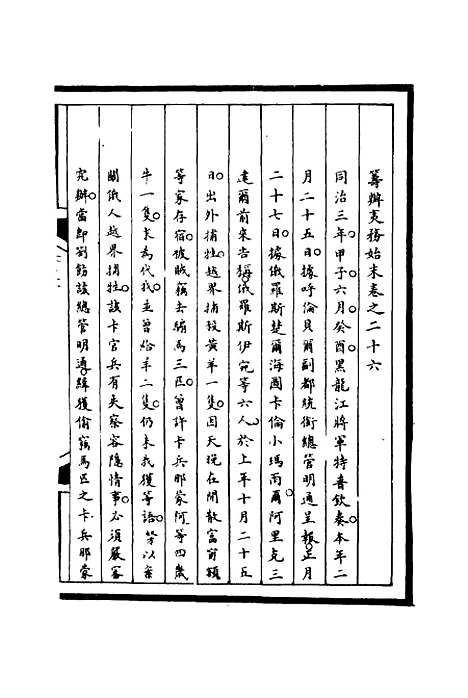 籌辦夷務始末卷之二十六
同治三年甲子六月癸酉黑龍江將軍特普欽奏本年二
月二十五日據呼倫貝爾副都統銜總管明通呈報正月
二十七日據俄羅斯楚爾海圖卡倫小瑪雨爾阿里克三
達爾前來告稱俄羅斯伊完等六人於上年十月二十五
日出外捕牲越界捕投黃羊一隻因天晚在閑散富甯額
等家存宿被賊竊去騸馬三匹曾許卡兵那蒙阿等四歲
牛一隻求為代找並曾給羊二隻仍未找獲等語等以案
關俄人越界捕牲該卡官兵有失察容隱情事必須嚴審
究辦當即劄飭該總管明通緝獲偷竊馬匹之卡兵那蒙